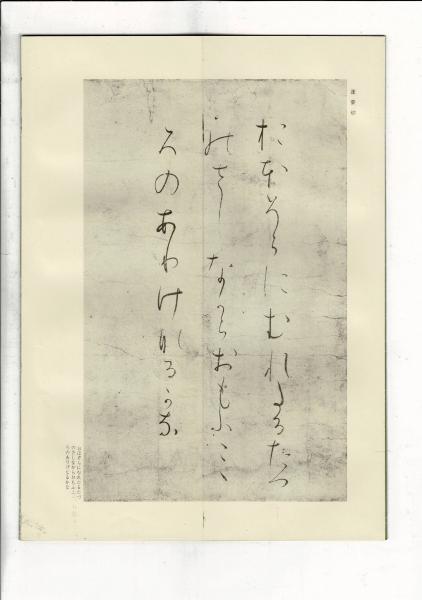 蓬莱切
おほそらにむれたるたつ
のさしなからおもふこゝ
ろのありけなるかな
おほぞらにむれたるたづ
のさしながらおもふこゝ
ろのありげなるかな